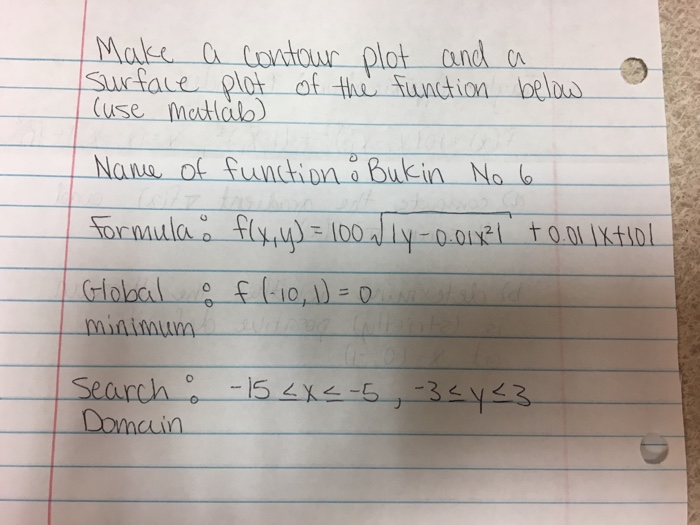 Make a contour plot and a
surface plot of the function below
(use matlab)
Name of function : Bukin No 6
Formula : f(x,y) = 100 √|y - 0.01x²| + 0.01 |x+10|
Global : f (-10, 1) = 0
minimum
Search : -15 ≤ x ≤ -5 , -3 ≤ y ≤ 3
Domain